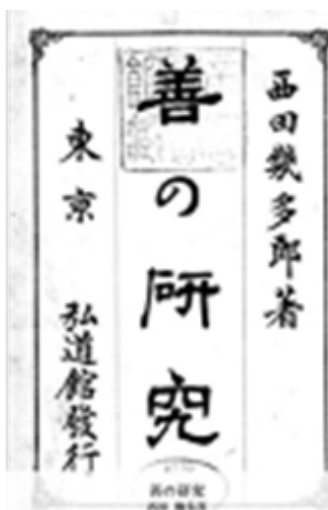 西田幾多郎著
善の研究
東京 弘道館發行
善の研究
西田 幾多郎